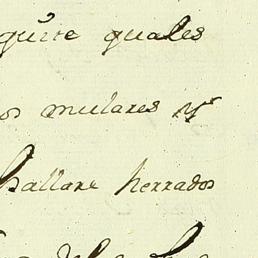 quire quales
os mulares y
hallare herrados